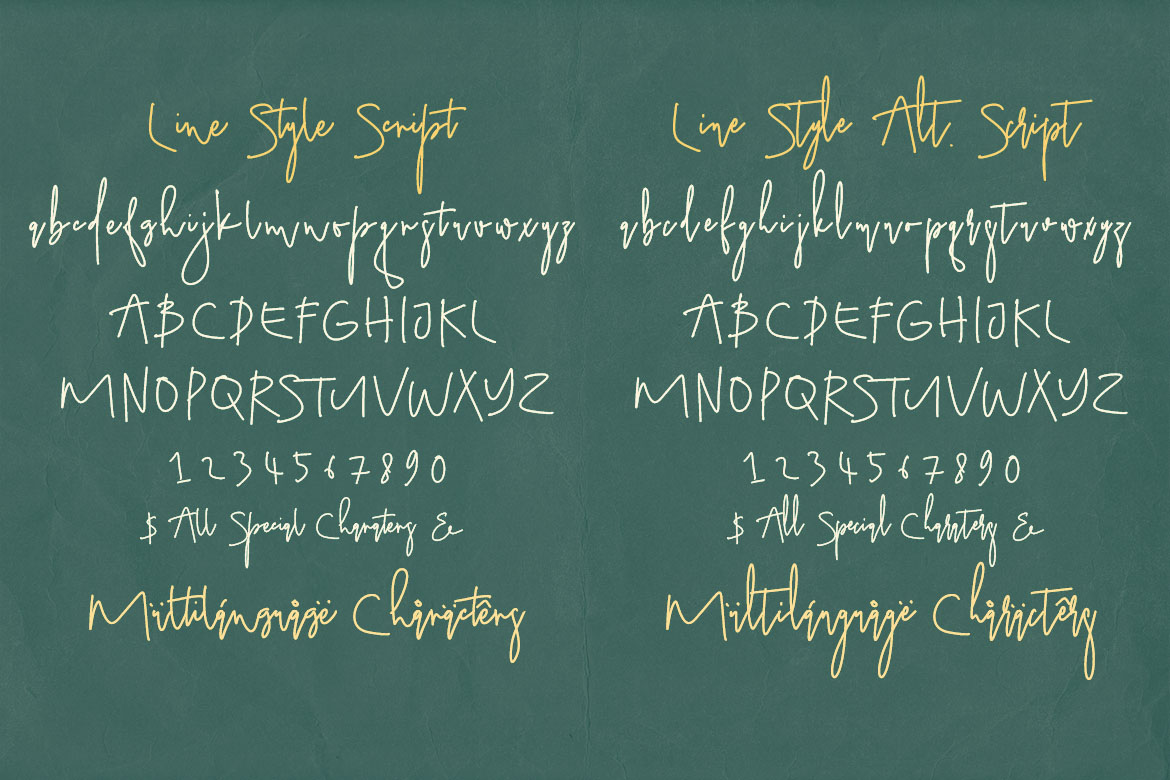 Line Style Script
abcdefghijklmnopqrstuvwxyz
ABCDEFGHIJKL
MNOPQRSTUVWXYZ
1234567890
$ All Special Charaters &
Mültilánguågë Chåräctêrs
Line Style Alt. Script
abcdefghijklmnopqrstuvwxyz
ABCDEFGHIJKL
MNOPQRSTUVWXYZ
1234567890
$ All Special Charaters &
Mültilánguågë Chåräctêrs